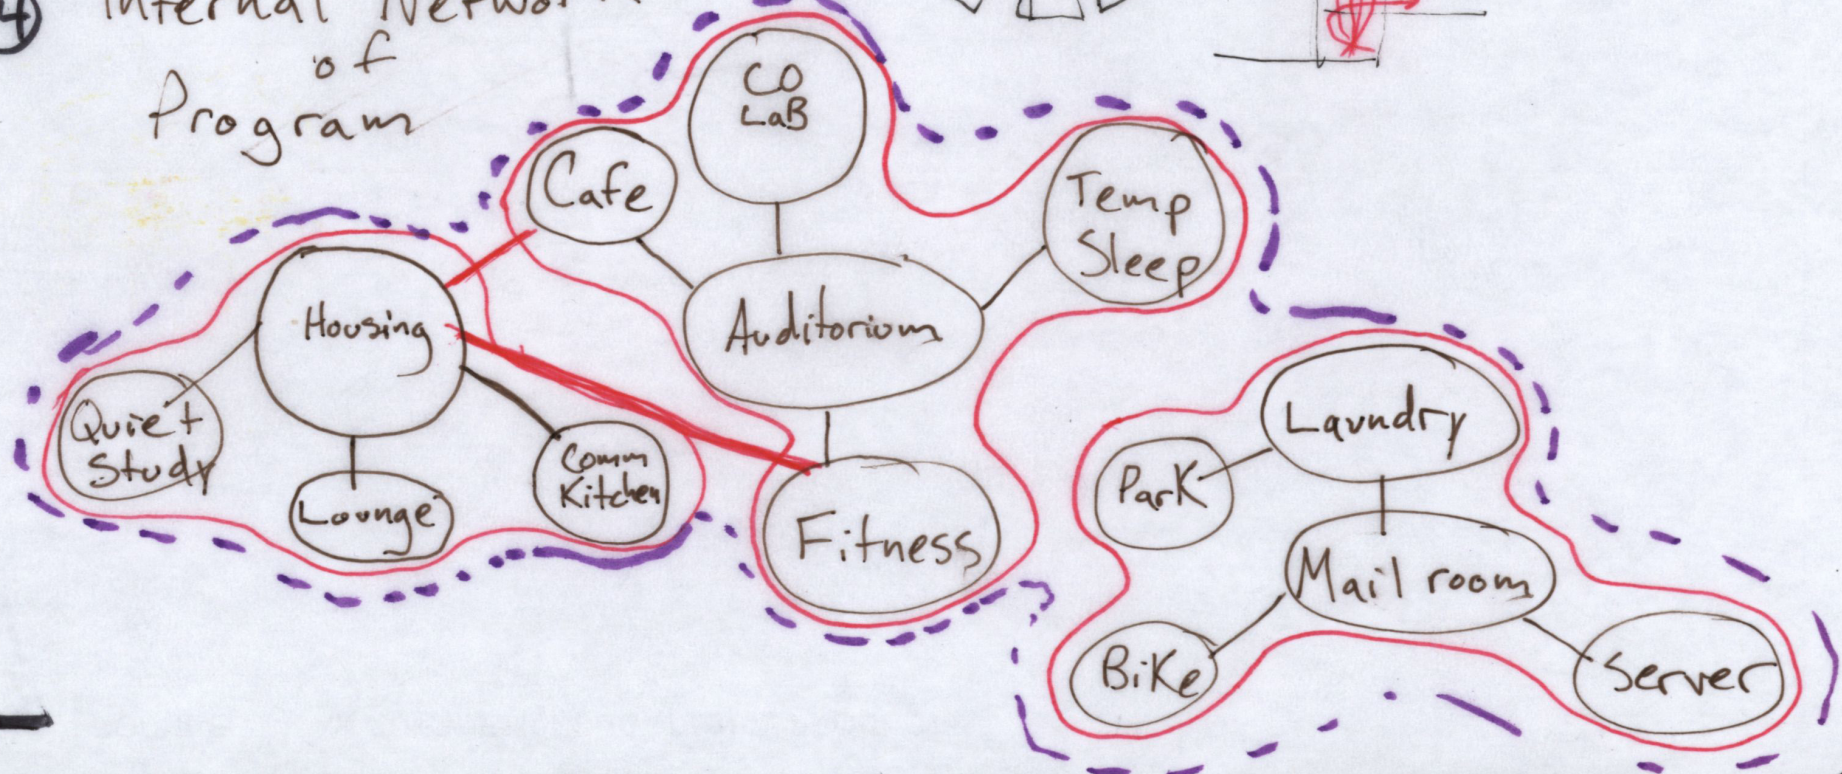 4
Internal Network
of
Program
CO
LaB
Cafe
Temp
Sleep
Housing
Auditorium
Quiet
Study
Lounge
Comm
Kitchen
Fitness
Laundry
Park
Mail room
Bike
Server